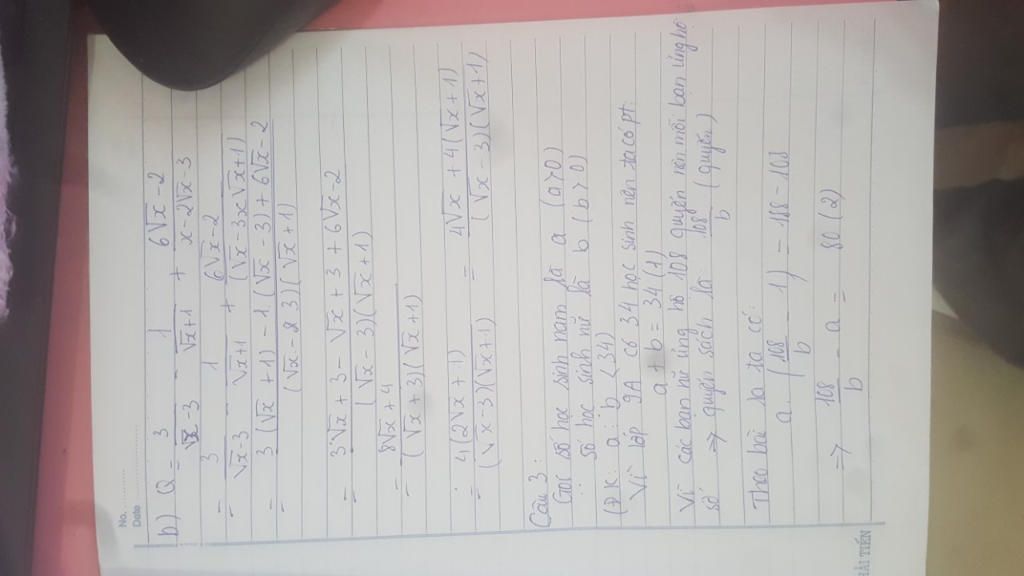 No.
Date
b) Q = 3/(√x-3) - 1/(√x+1) + (6√x-2)/(x-2√x-3)
= 3/(√x-3) - 1/(√x+1) + (6√x-2)/((√x-3x√x+1)
= (3(√x+1)-1(√x-3)+6√x-2)/((√x-3)(√x+1)
= (3√x+3-√x+3+6√x-2)/((√x-3)(√x+1)
= (8√x+4)/((√x+3)(√x+1)
= 4(2√x+1)/((√x-3)(√x+1) = (4√x+4(√x+1)/((√x-3)(√x+1)
Câu 3:
Gọi số học sinh nam là a (a>0)
số học sinh nữ là b (b>0)
(ĐK: a; b <34)
Vì lớp 9A có 34 học sinh nên ta có pt:
a + b = 34 (1)
Vì các bạn nữ ủng hộ 108 quyển nên mỗi bạn ủng hộ
số => quyển sách là 108/b (quyển)
Theo bài ra ta có:
a.(108/b - 1) = 188-108
=> 108/b - a = 80 (2)
HẢI TIẾN